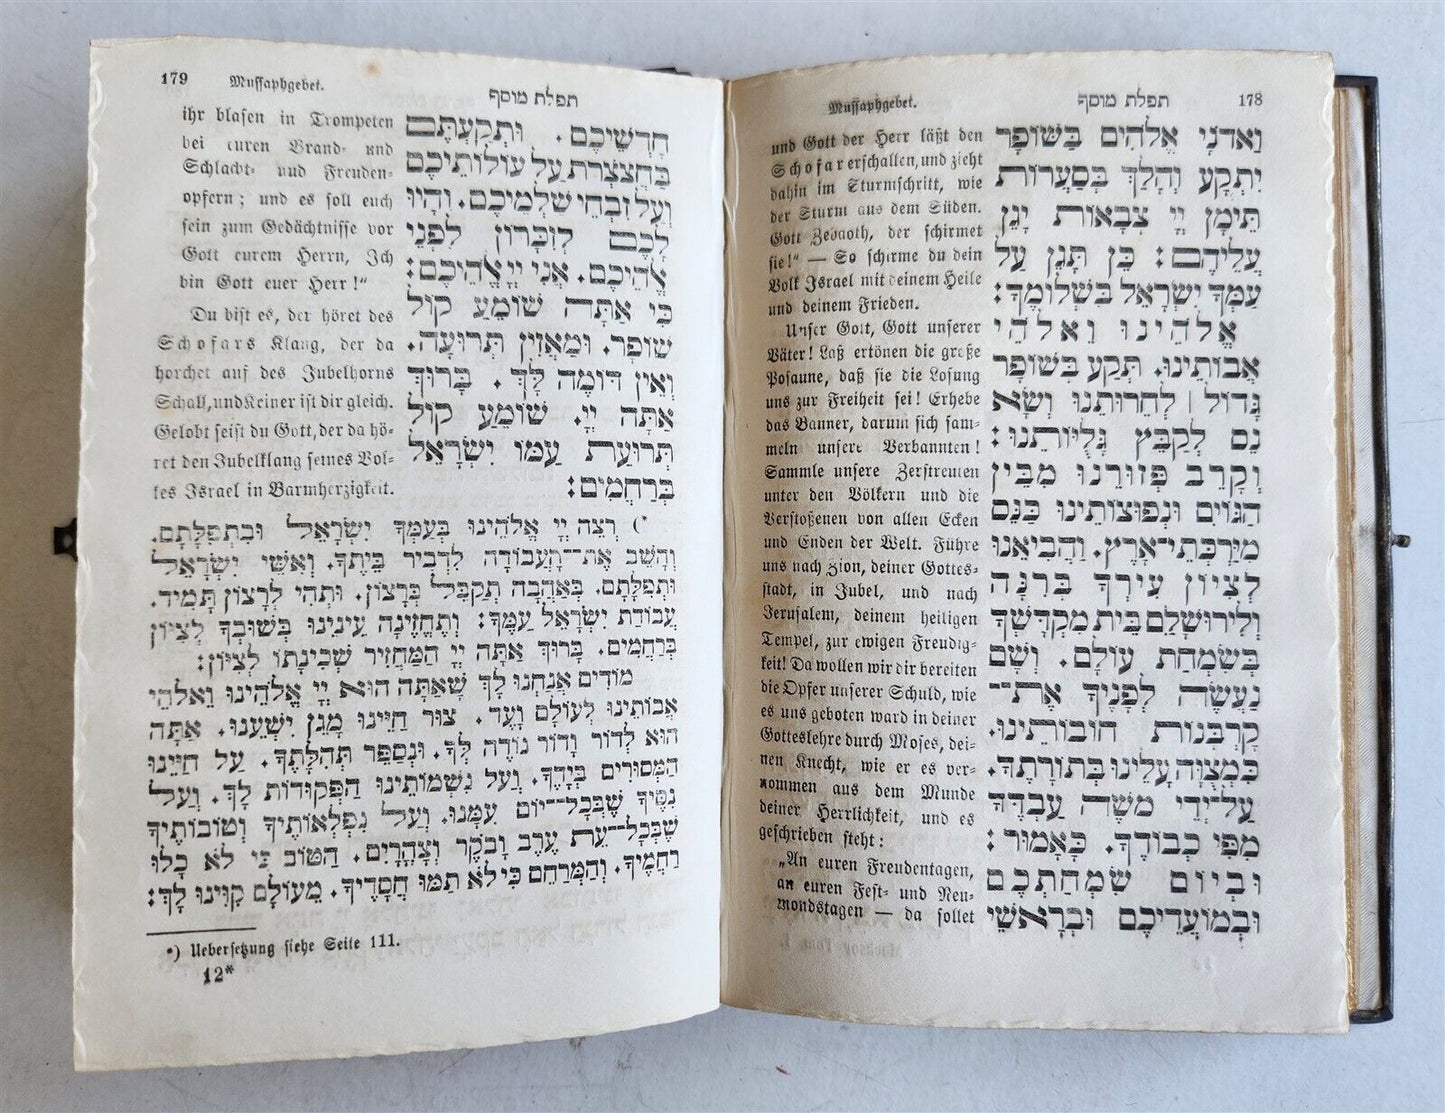 Mussaphgebet. תפלת מוסף 178
וַאדֹנָי אֱלֹהִים בַּשּׁוֹפָר
יִתְקָע וְהָלַךְ בְּסַעֲרוֹת
תֵּימָן יְיָ צְבָאוֹת יָגֵן
עֲלֵיהֶם: כֵּן תָּגֵן עַל
עַמְּךָ יִשְׂרָאֵל בִּשְׁלוֹמֶךָ:
אֱלֹהֵינוּ וֵאלֹהֵי
אֲבוֹתֵינוּ. תְּקַע בְּשׁוֹפָר
גָּדוֹל לְחֵרוּתֵנוּ וְשָׂא
נֵס לְקַבֵּץ גָּלֻיּוֹתֵנוּ:
וְקָרֵב פְּזוּרֵנוּ מִבֵּין
הַגּוֹיִם וּנְפוּצוֹתֵינוּ כַּנֵּס
מִיַּרְכְּתֵי־אָרֶץ. וַהֲבִיאֵנוּ
לְצִיּוֹן עִירְךָ בְּרִנָּה
וְלִירוּשָׁלַיִם בֵּית מִקְדָּשְׁךָ
בְּשִׂמְחַת עוֹלָם. וְשָׁם
נַעֲשֶׂה לְפָנֶיךָ אֶת־
קָרְבְּנוֹת חוֹבוֹתֵינוּ.
כִּמְצֻוָּה עָלֵינוּ בְּתוֹרָתֶךָ.
עַל־יְדֵי מֹשֶׁה עַבְדֶּךָ
מִפִּי כְבוֹדֶךָ. כָּאָמוּר:
וּבְיוֹם שִׂמְחַתְכֶם
וּבְמוֹעֲדֵיכֶם וּבְרָאשֵׁי
und Gott der Herr läßt den
Schofar erschallen, und zieht
dahin im Sturmschritt, wie
der Sturm aus dem Süden.
Gott Zebaoth, der schirmet
sie!“ — So schirme du dein
Volk Israel mit deinem Heile
und deinem Frieden.
Unser Gott, Gott unserer
Väter! Laß ertönen die große
Posaune, daß sie die Losung
uns zur Freiheit sei! Erhebe
das Banner, darum sich sam=
meln unsere Verbannten!
Sammle unsere Zerstreuten
unter den Völkern und die
Verstoßenen von allen Ecken
und Enden der Welt. Führe
uns nach Zion, deiner Gottes=
stadt, in Jubel, und nach
Jerusalem, deinem heiligen
Tempel, zur ewigen Freudig=
keit! Da wollen wir dir bereiten
die Opfer unserer Schuld, wie
es uns geboten ward in deiner
Gotteslehre durch Moses, dei=
nen Knecht, wie er es ver=
nommen aus dem Munde
deiner Herrlichkeit, und es
geschrieben steht:
„An euren Freudentagen,
an euren Fest= und Neu=
mondstagen — da sollet
179 Mussaphgebet. תפלת מוסף
חָדְשֵׁיכֶם. וּתְקַעְתֶּם
בַּחֲצֹצְרֹת עַל עוֹלוֹתֵיכֶם
וְעַל זִבְחֵי שַׁלְמֵיכֶם. וְהָיוּ
לָכֶם לְזִכָּרוֹן לִפְנֵי
אֱלֹהֵיכֶם. אֲנִי יְיָ אֱלֹהֵיכֶם:
כִּי אַתָּה שׁוֹמֵעַ קוֹל
שׁוֹפָר. וּמַאֲזִין תְּרוּעָה.
וְאֵין דּוֹמֶה לָּךְ. בָּרוּךְ
אַתָּה יְיָ. שׁוֹמֵעַ קוֹל
תְּרוּעַת עַמּוֹ יִשְׂרָאֵל
בְּרַחֲמִים:
ihr blasen in Trompeten
bei euren Brand= und
Schlacht= und Freuden=
opfern; und es soll euch
sein zum Gedächtnisse vor
Gott eurem Herrn, Ich
bin Gott euer Herr!“
Du bist es, der höret des
Schofars Klang, der da
horchet auf des Jubelhorns
Schall, und Keiner ist dir gleich.
Gelobt seist du Gott, der da hö=
ret den Jubelklang seines Vol=
kes Israel in Barmherzigkeit.
*) רְצֵה יְיָ אֱלֹהֵינוּ בְּעַמְּךָ יִשְׂרָאֵל וּבִתְפִלָּתָם.
וְהָשֵׁב אֶת־הָעֲבוֹדָה לִדְבִיר בֵּיתֶךָ. וְאִשֵּׁי יִשְׂרָאֵל
וּתְפִלָּתָם. בְּאַהֲבָה תְקַבֵּל בְּרָצוֹן. וּתְהִי לְרָצוֹן תָּמִיד.
עֲבוֹדַת יִשְׂרָאֵל עַמֶּךָ: וְתֶחֱזֶינָה עֵינֵינוּ בְּשׁוּבְךָ לְצִיּוֹן
בְּרַחֲמִים. בָּרוּךְ אַתָּה יְיָ הַמַּחֲזִיר שְׁכִינָתוֹ לְצִיּוֹן:
מוֹדִים אֲנַחְנוּ לָךְ שָׁאַתָּה הוּא יְיָ אֱלֹהֵינוּ וֵאלֹהֵי
אֲבוֹתֵינוּ לְעוֹלָם וָעֶד. צוּר חַיֵּינוּ מָגֵן יִשְׁעֵנוּ. אַתָּה
הוּא לְדוֹר וָדוֹר נוֹדֶה לְּךָ. וּנְסַפֵּר תְּהִלָּתֶךָ. עַל חַיֵּינוּ
הַמְּסוּרִים בְּיָדֶךָ. וְעַל נִשְׁמוֹתֵינוּ הַפְּקוּדוֹת לָךְ. וְעַל
נִסֶּיךָ שֶׁבְּכָל־יוֹם עִמָּנוּ. וְעַל נִפְלְאוֹתֶיךָ וְטוֹבוֹתֶיךָ
שֶׁבְּכָל־עֵת עֶרֶב וָבֹקֶר וְצָהֳרָיִם. הַטּוֹב כִּי לֹא כָלוּ
רַחֲמֶיךָ. וְהַמְרַחֵם כִּי לֹא תַמּוּ חֲסָדֶיךָ. מֵעוֹלָם קִוִּינוּ לָךְ:
*) Uebersetzung siehe Seite 111.
12*